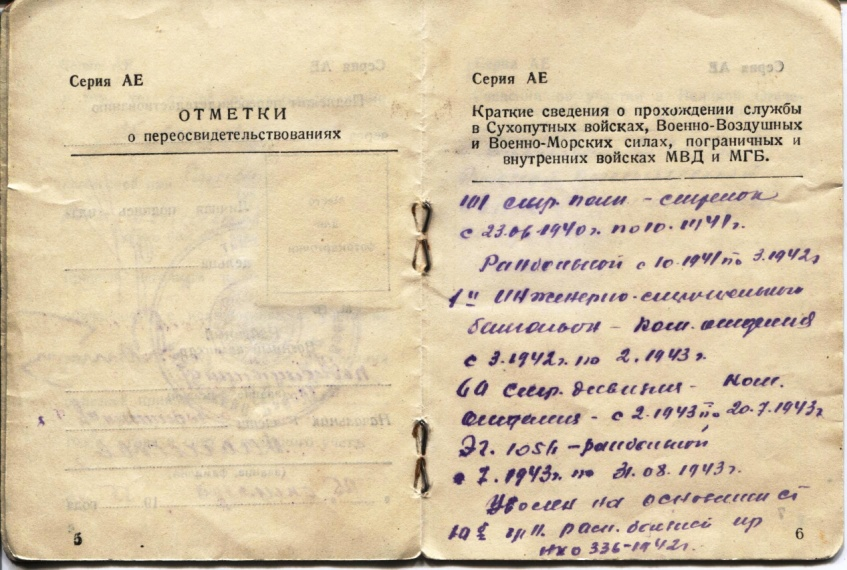 Серия АЕ
ОТМЕТКИ
о переосвидетельствованиях
5
Серия АЕ
Краткие сведения о прохождении службы
в Сухопутных войсках, Военно-Воздушных
и Военно-Морских силах, пограничных и
внутренних войсках МВД и МГБ.
101 стр. полк -
с 23.06.1940г. по 10.1941г.
Ранбольной с 10.1941 по 3.1942г
1й Инженерно-строительный
батальон - Ком. отделения
с 3.1942г. по 2.1943г.
стр. дивизия - Ком.
отделения - с 2.1943 по 20.7.1943г
ЭГ. 1054 - ранбольной
с 7.1943г. по 31.08.1943г.
Уволен на основании ст
расп. болезней пр
НКО 336-1942г.
6